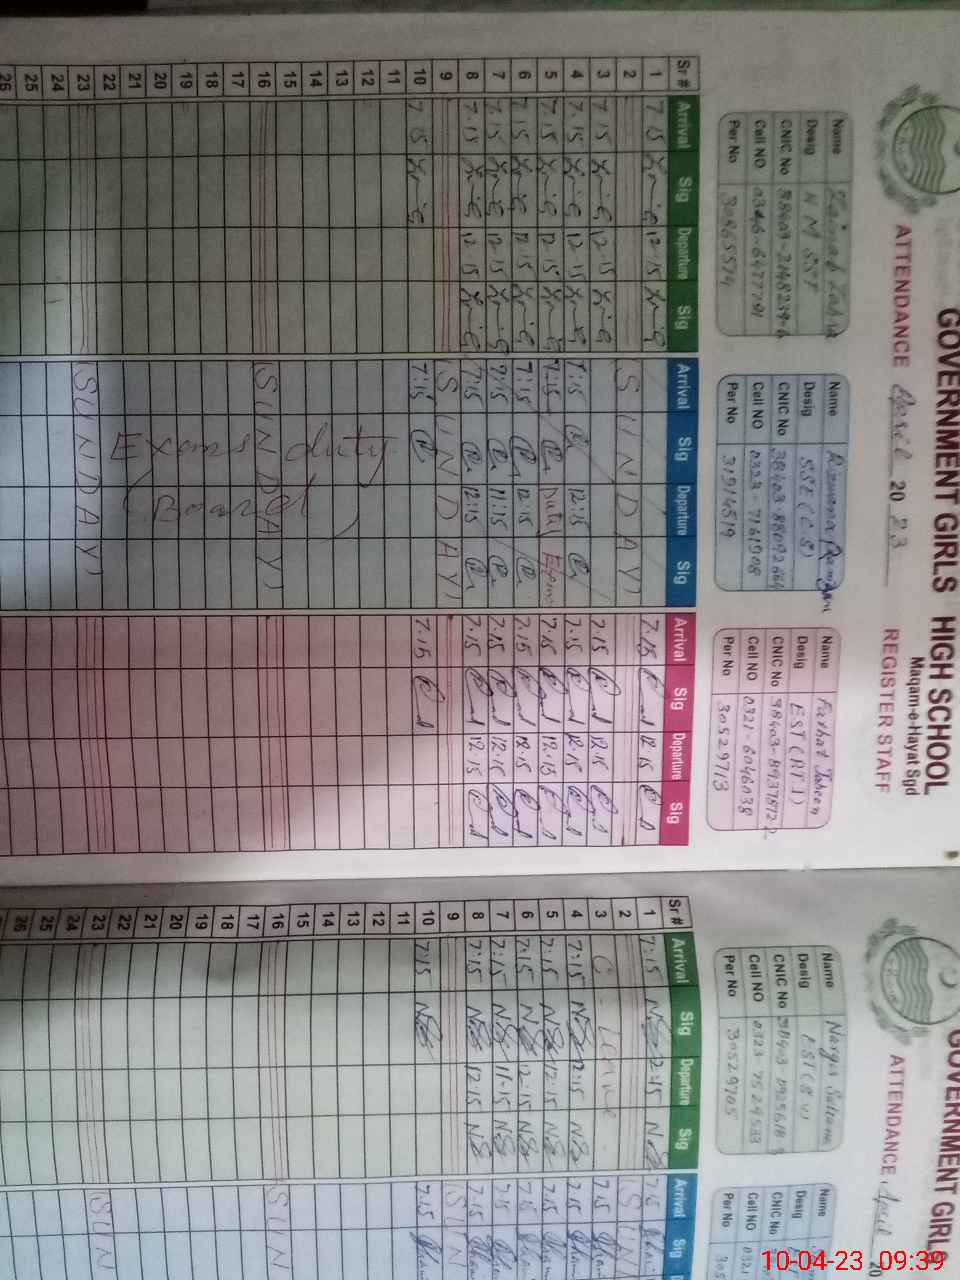 GOVERNMENT GIRLS HIGH SCHOOL
Maqam-e-Hayat Sgd
ATTENDANCE April 2023 REGISTER STAFF
Name Zainab Zahra
Desig HM SST
CNIC No
Cell NO 0346-6477791
Per No 30865574
Name Rizwana Ramzan
Desig SSE (CS)
CNIC No
Cell NO 0323-7161908
Per No 31914519
Name Farhat Jabeen
Desig EST (AT.)
CNIC No
Cell NO 0321-6046038
Per No 30529713
Sr # Arrival Sig Departure Sig Arrival Sig Departure Sig Arrival Sig Departure Sig
1 7.15 12.15 7.15 12.15
2 (SUNDAY)
3 7.15 12.15 7.15 12.15
4 7.15 12.15 7:15 12:15 7.15 12.15
5 7.15 12.15 7:15 Duty Exam 7.15 12.15
6 7.15 12.15 7:15 12:15 7.15 12.15
7 7.15 12.15 7:15 11:15 7.15 12.15
8 7.15 12.15 7:15 12:15 7.15 12.15
9 (SUNDAY)
10 7.15 7:15 7.15
11
12
13
14
15
16 (SUNDAY)
17
18
19
20
21
22
23 (SUNDAY)
24
25
26
Exams duty
(Board)
GOVERNMENT GIRLS
ATTENDANCE April 20
Name Nargis Sultana
Desig EST
CNIC No
Cell NO 0323-7524533
Per No 30529705
Name
Desig
CNIC No
Cell NO 0321
Per No 305
Sr # Arrival Sig Departure Sig Arrival Sig
1 7:15 12:15 7.15
2 (SUN
3 C Leave 7.15
4 7:15 12:15 7.15
5 7:15 12:15 7.15
6 7:15 12:15 7.15
7 7:15 11:15 7.15
8 7:15 12:15 7.15
9 (SUN
10 7:15 7.15
11
12
13
14
15
16 (SUN
17
18
19
20
21
22
23 (SUN
24
25
26
10-04-23 09:39